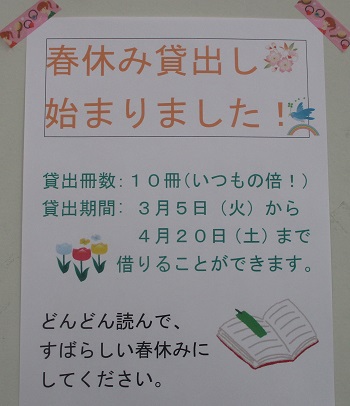 春休み貸出し
始まりました！
貸出冊数：１０冊（いつもの倍！）
貸出期間：　３月５日（火）から
４月２０日（土）まで
借りることができます。
どんどん読んで、
すばらしい春休みに
してください。